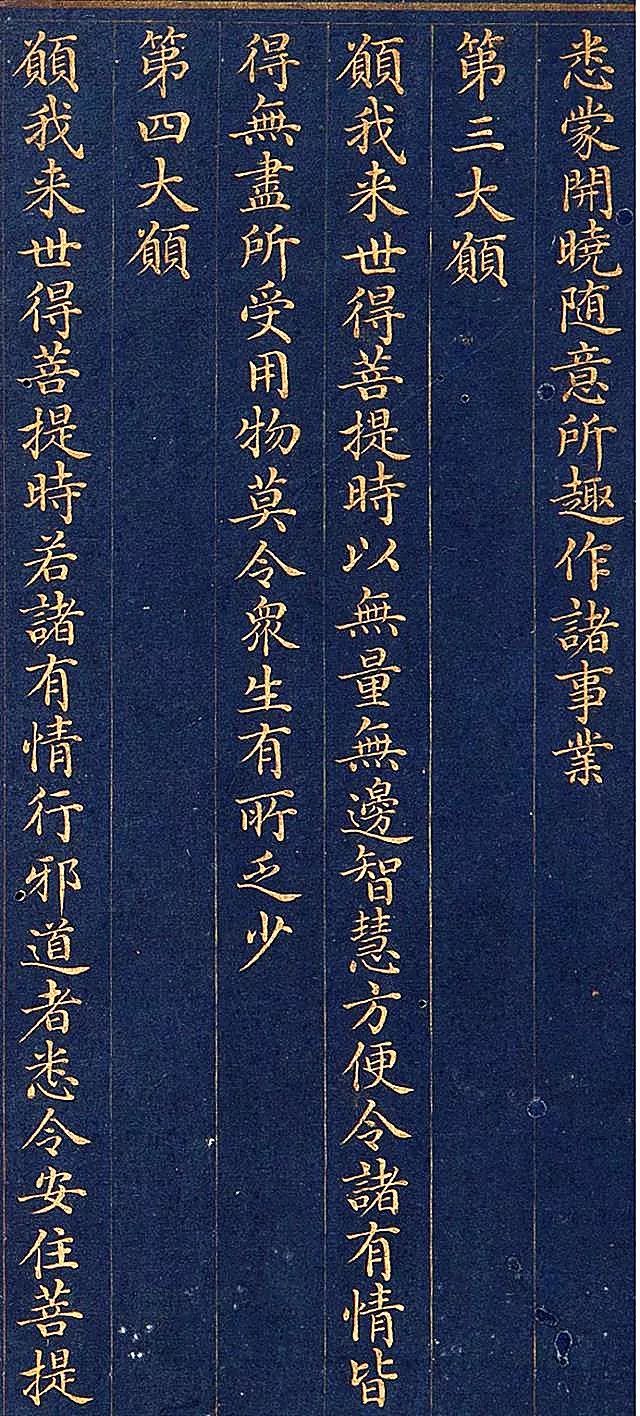 悉蒙開曉随意所趣作諸事業
第三大願
願我来世得菩提時以無量無邊智慧方便令諸有情皆
得無盡所受用物莫令衆生有所乏少
第四大願
願我来世得菩提時若諸有情行邪道者悉令安住菩提